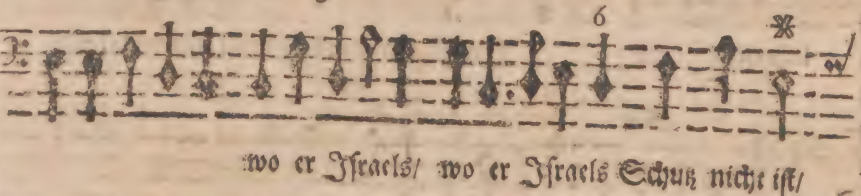 6
wo er Iſraels/ wo er Iſraels Schutz nicht iſt/